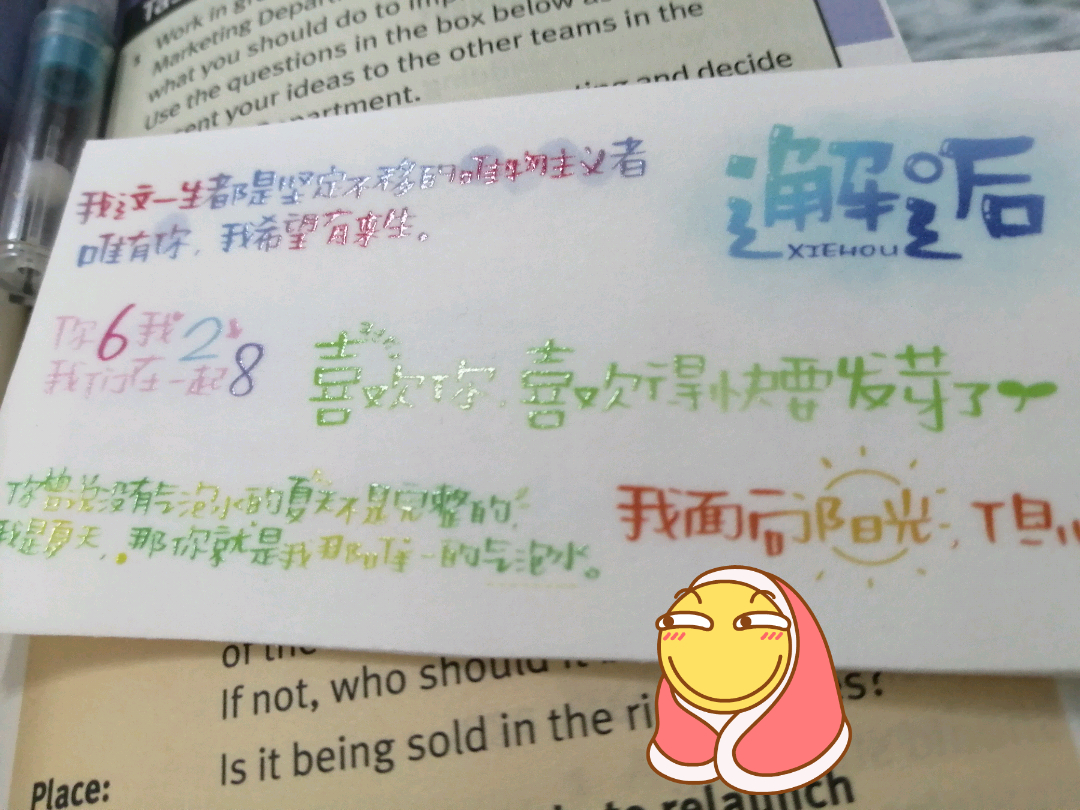 Work in
Marketing Depar
what you should do to imp
Use the questions in the box below as
sent your ideas to the other teams in the
artment.
ting and decide
我这一生都是坚定不移的唯物主义者
唯有你，我希望有来生。
邂逅
XIEHOU
你6我2
我们在一起8
喜欢你，喜欢得快要发芽了
没有气泡水的夏天不是完整的，
我是夏天，那你就是我那唯一的气泡水。
我面向阳光，但
of the
If not, who should it
Is it being sold in the ri
es?
Place:
to relaunch